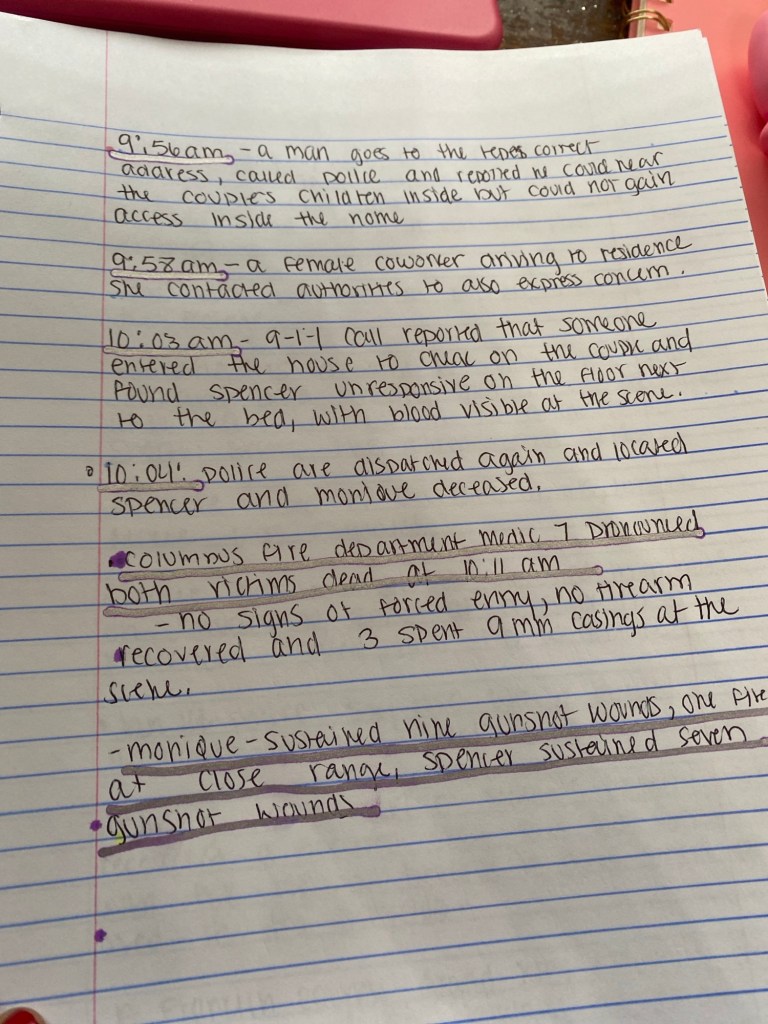 9:56am - a man goes to the tepes correct
address, called police and reported he could hear
the couples children inside but could not gain
access inside the home
9:58am - a female coworker ariving to residence
She contacted authorities to also express concern.
10:03 am - 9-1-1 call reported that someone
entered the house to check on the couple and
found spencer unresponsive on the floor next
to the bed, with blood visible at the scene.
10:04: police are dispatched again and located
spencer and monique deceased.
•columbus fire department medic 7 pronounced
both victims dead at 10:11 am
- no signs of forced entry, no firearm
recovered and 3 spent 9mm casings at the
scene.
- monique - sustained nine gunshot wounds, one fire
at close range, spencer sustained seven
gunshot wounds